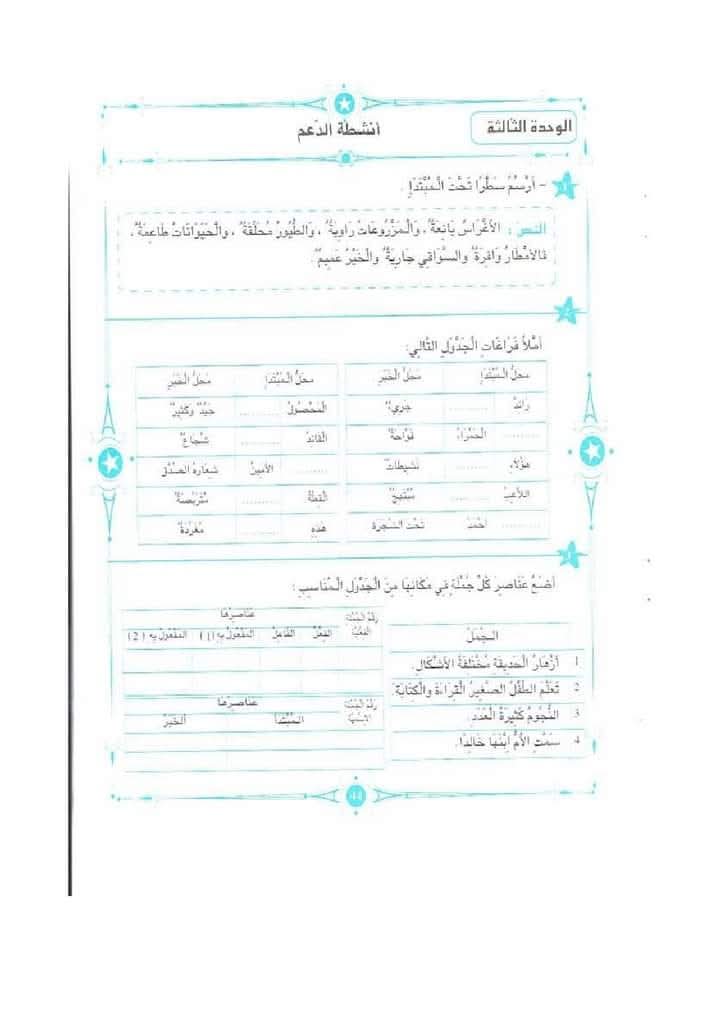 الوحدة الثالثة
أنشطة الدعم
1
- أَرْسُمُ سَطْرًا تَحْتَ الْمُبْتَدَإِ .
النص : الأَغْرَاسُ يَانِعَةٌ ، وَالْمَزْرُوعَاتُ رَاوِيَةٌ ، وَالطُّيُورُ مُحَلِّقَةٌ ، وَالْحَيَوَانَاتُ طَاعِمَةٌ ،
فَالأَمْطَارُ وَافِرَةٌ وَالسَّوَاقِي جَارِيَةٌ وَالْخَيْرُ عَمِيمٌ.
2
أَمْلَأُ فَرَاغَاتِ الْجَدْوَلِ التَّالِي:
محلّ الْمُبْتَدَإِ محلّ الْخَبَرِ
رائدٌ .......... جَرِيءٌ
.......... الْحَمْرَاءُ فَوَّاحَةٌ
هؤلاء .......... نَشِيطَاتٌ
اللاعبُ .......... مُبْتَهِجٌ
.......... أَحْمَدَ تَحْتَ الشَّجَرَةِ
محلّ الْمُبْتَدَإِ محلّ الْخَبَرِ
الْمَحْصُولُ .......... جَيِّدٌ وَكَثِيرٌ
القائدُ .......... شُجَاعٌ
.......... الأَمِينُ شِعَارُهُ الصِّدْقُ
القِطَّةُ .......... مُتَرَبِّصَةٌ
هذهِ .......... مُغَرِّدَةٌ
أَضَعُ عَنَاصِرَ كُلِّ جُمْلَةٍ فِي مَكَانِهَا مِنَ الْجَدْوَلِ الْمُنَاسِبِ :
الجُمَلُ
1 أَزْهَارُ الْحَدِيقَةِ مُخْتَلِفَةُ الأَشْكَالِ.
2 تَعَلَّمَ الطِّفْلُ الصَّغِيرُ الْقِرَاءَةَ وَالْكِتَابَةَ.
3 النُّجُومُ كَثِيرَةُ الْعَدَدِ.
4 سَمَّتِ الأُمُّ ابْنَهَا خَالِدًا.
رَقْمُ الْجُمْلَةِ الْفِعْلِيَّة عناصرها
الفِعْلُ الفَاعِلُ المَفْعُولُ بِهِ (1) المَفْعُولُ بِهِ (2)
رَقْمُ الْجُمْلَةِ الاِسْمِيَّة عناصرها
المُبْتَدَأُ الخَبَرُ
44